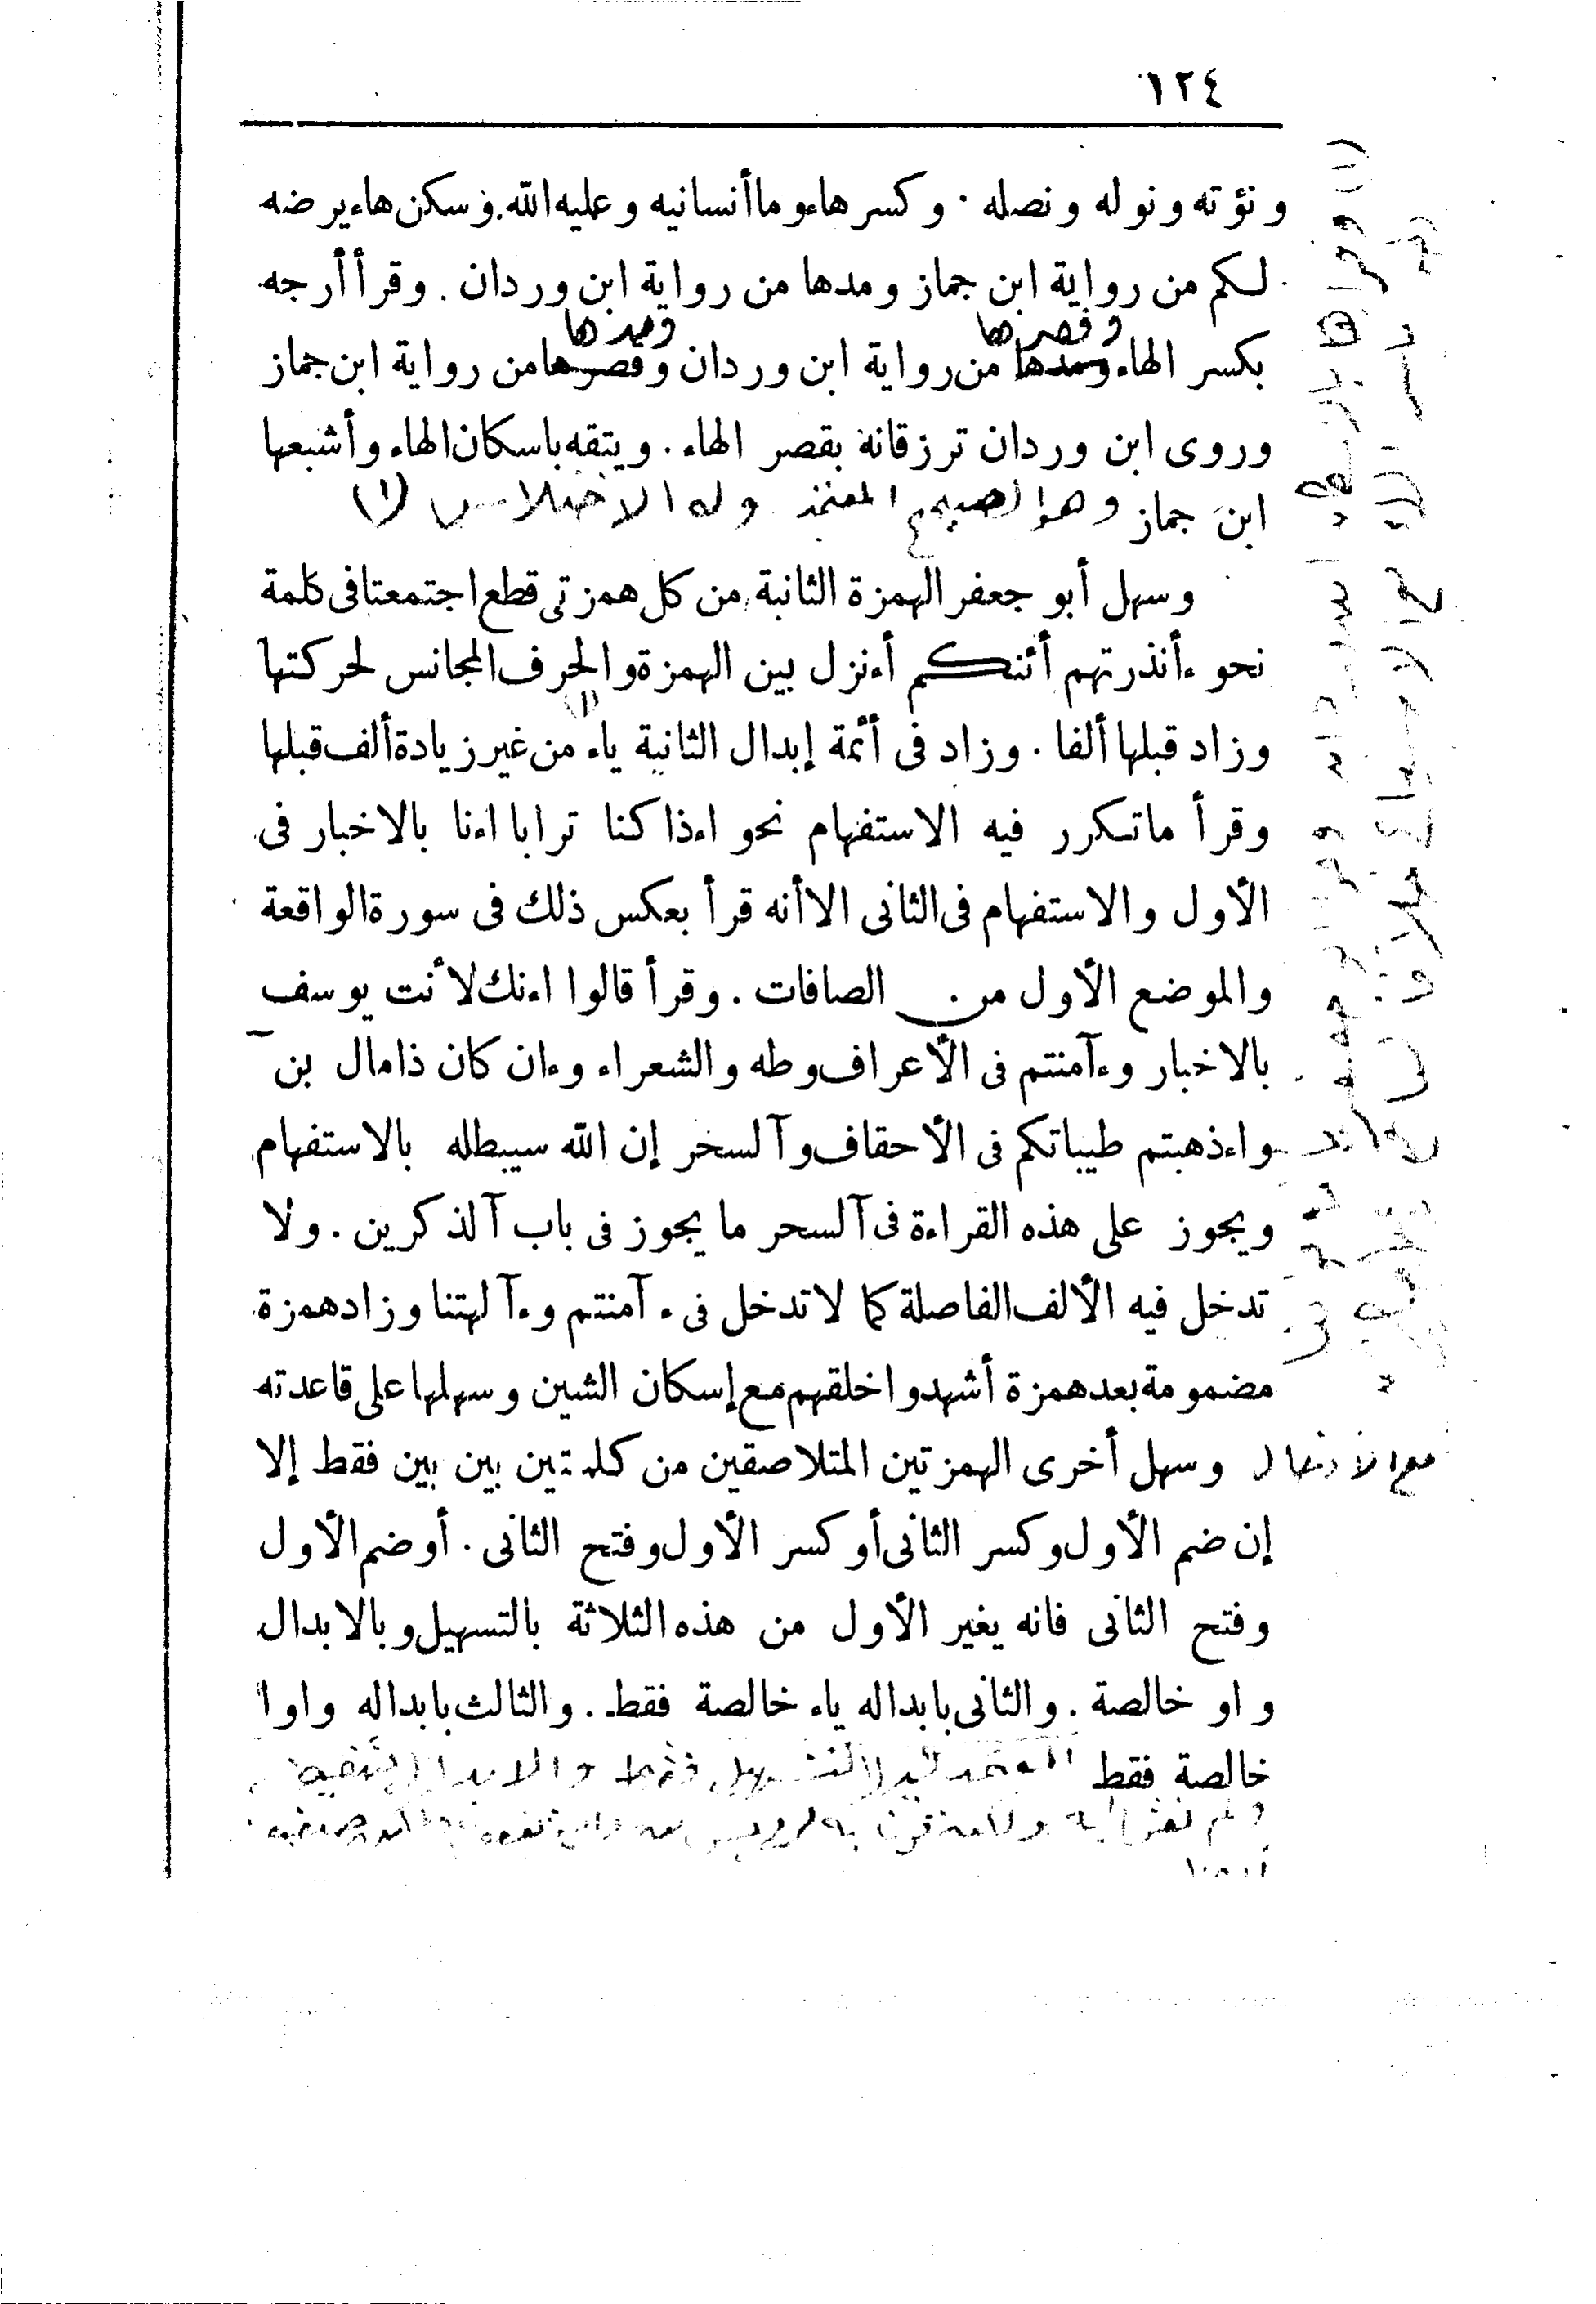 ١٢٤
و نؤته و نوله و نصله . و كسر هاء وما أنسانيه وعليه الله . وسكن هاء يرضه
لكم من رواية ابن جماز ومدها من رواية ابن وردان . وقرأ أرجه
وقصرها ومدها
بكسر الهاء ومدها من رواية ابن وردان وقصرها من رواية ابن جماز
وروى ابن وردان ترزقانه بقصر الهاء . ويتقه باسكان الهاء وأشبعها
ابن جماز وهو الصحيح المعتمد وله الاختلاس (١)
وسهل أبو جعفر الهمزة الثانية من كل همزتى قطع اجتمعتا فى كلمة
نحو ءأنذرتهم أئنكم أءنزل بين الهمزة والحرف المجانس لحركتها
(١)
وزاد قبلها ألفا . وزاد فى أئمة إبدال الثانية ياء من غير زيادة ألف قبلها
وقرأ ماتكرر فيه الاستفهام نحو اءذا كنا ترابا اءنا بالاخبار فى
الأول والاستفهام فى الثانى الا أنه قرأ بعكس ذلك فى سورة الواقعة
والموضع الأول من الصافات . وقرأ قالوا اءنك لأنت يوسف
بالاخبار وءآمنتم فى الأعراف وطه والشعراء وءان كان ذا مال بن
واءذهبتم طيباتكم فى الأحقاف وآلسحر إن الله سيبطله بالاستفهام
ويجوز على هذه القراءة فى آلسحر ما يجوز فى باب آلذكرين . ولا
تدخل فيه الألف الفاصلة كما لا تدخل فى ءآمنتم وءآلهتنا وزاد همزة
مضمومة بعد همزة أشهدوا خلقهم مع إسكان الشين وسهلها على قاعدته
مع الادخال وسهل أخرى الهمزتين المتلاصقين من كلمتين بين بين فقط إلا
إن ضم الأول وكسر الثانى أو كسر الأول وفتح الثانى . أو ضم الأول
وفتح الثانى فانه يغير الأول من هذه الثلاثة بالتسهيل وبالابدال
واو خالصة . والثانى بابداله ياء خالصة فقط . والثالث بابداله واوا
خالصة فقط